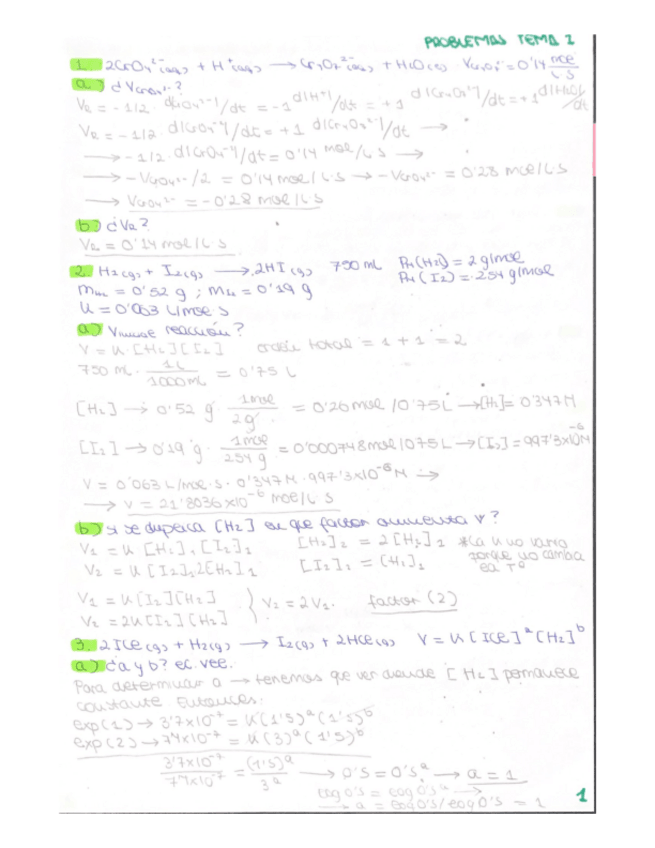 PROBLEMAS TEMA 2
1. 2CrO₄²⁻(aq) + H⁺(aq) → Cr₂O₇²⁻(aq) + H₂O(l) V Cr₂O₇²⁻ = 0'14 mol/L S
a) ¿VCrO₄²⁻?
VR = -1/2 · d[CrO₄²⁻]/dt = -1 d[H⁺]/dt = +1 d[Cr₂O₇²⁻]/dt = +1 d[H₂O]/dt
VR = -1/2 · d[CrO₄²⁻]/dt = +1 d[Cr₂O₇²⁻]/dt →
→ -1/2 · d[CrO₄²⁻]/dt = 0'14 mol/L·S →
→ -VCrO₄²⁻/2 = 0'14 mol/L·S → -VCrO₄²⁻ = 0'28 mol/L S
→ VCrO₄²⁻ = -0'28 mol/L S
b) ¿VR?
VR = 0'14 mol/L·S
2. H₂(g) + I₂(g) → 2HI(g) 750 mL Pm(H₂) = 2 g/mol
Pm(I₂) = 254 g/mol
mH₂ = 0'52 g ; mI₂ = 0'19 g
K = 0'063 L/mol S
a) reacción?
V = K · [H₂][I₂] orden total = 1 + 1 = 2
750 mL · 1L/1000mL = 0'75 L
[H₂] → 0'52 g · 1mol/2g = 0'26 mol / 0'75L → [H₂] = 0'347M
[I₂] → 0'19 g · 1mol/254 g = 0'000748 mol / 0'75L → [I₂] = 997'3×10⁻⁶M
V = 0'063 L/mol·S · 0'347M · 997'3×10⁻⁶M →
→ V = 21'8036×10⁻⁶ mol/L S
b) si se duplica [H₂] en que factor aumenta V?
V₁ = K [H₂]₁[I₂]₁ [H₂]₂ = 2[H₂]₁ *La K no varia
V₂ = K [I₂]₁2[H₂]₁ [I₂]₂ = [H₂]₁ porque no cambia la Tº
V₁ = K[I₂][H₂]
V₂ = 2K[I₂][H₂] } V₂ = 2V₁. factor (2)
3. 2ICl(g) + H₂(g) → I₂(g) + 2HCl(g) V = K [ICl]ᵃ[H₂]ᵇ
a) ¿a y b? ec. vel.
Para determinar a → tenemos que ver donde [H₂] permanece
constante. Entonces:
exp(1) → 3'7×10⁻⁷ = K(1'5)ᵃ(1'5)ᵇ
exp(2) → 7'4×10⁻⁷ = K(3)ᵃ(1'5)ᵇ
3'7×10⁻⁷/7'4×10⁻⁷ = (1'5)ᵃ/3ᵃ → 0'5 = 0'5ᵃ → a = 1
log 0'5 = log 0'5ᵃ →
→ a = log 0'5/log 0'5 = 1
1